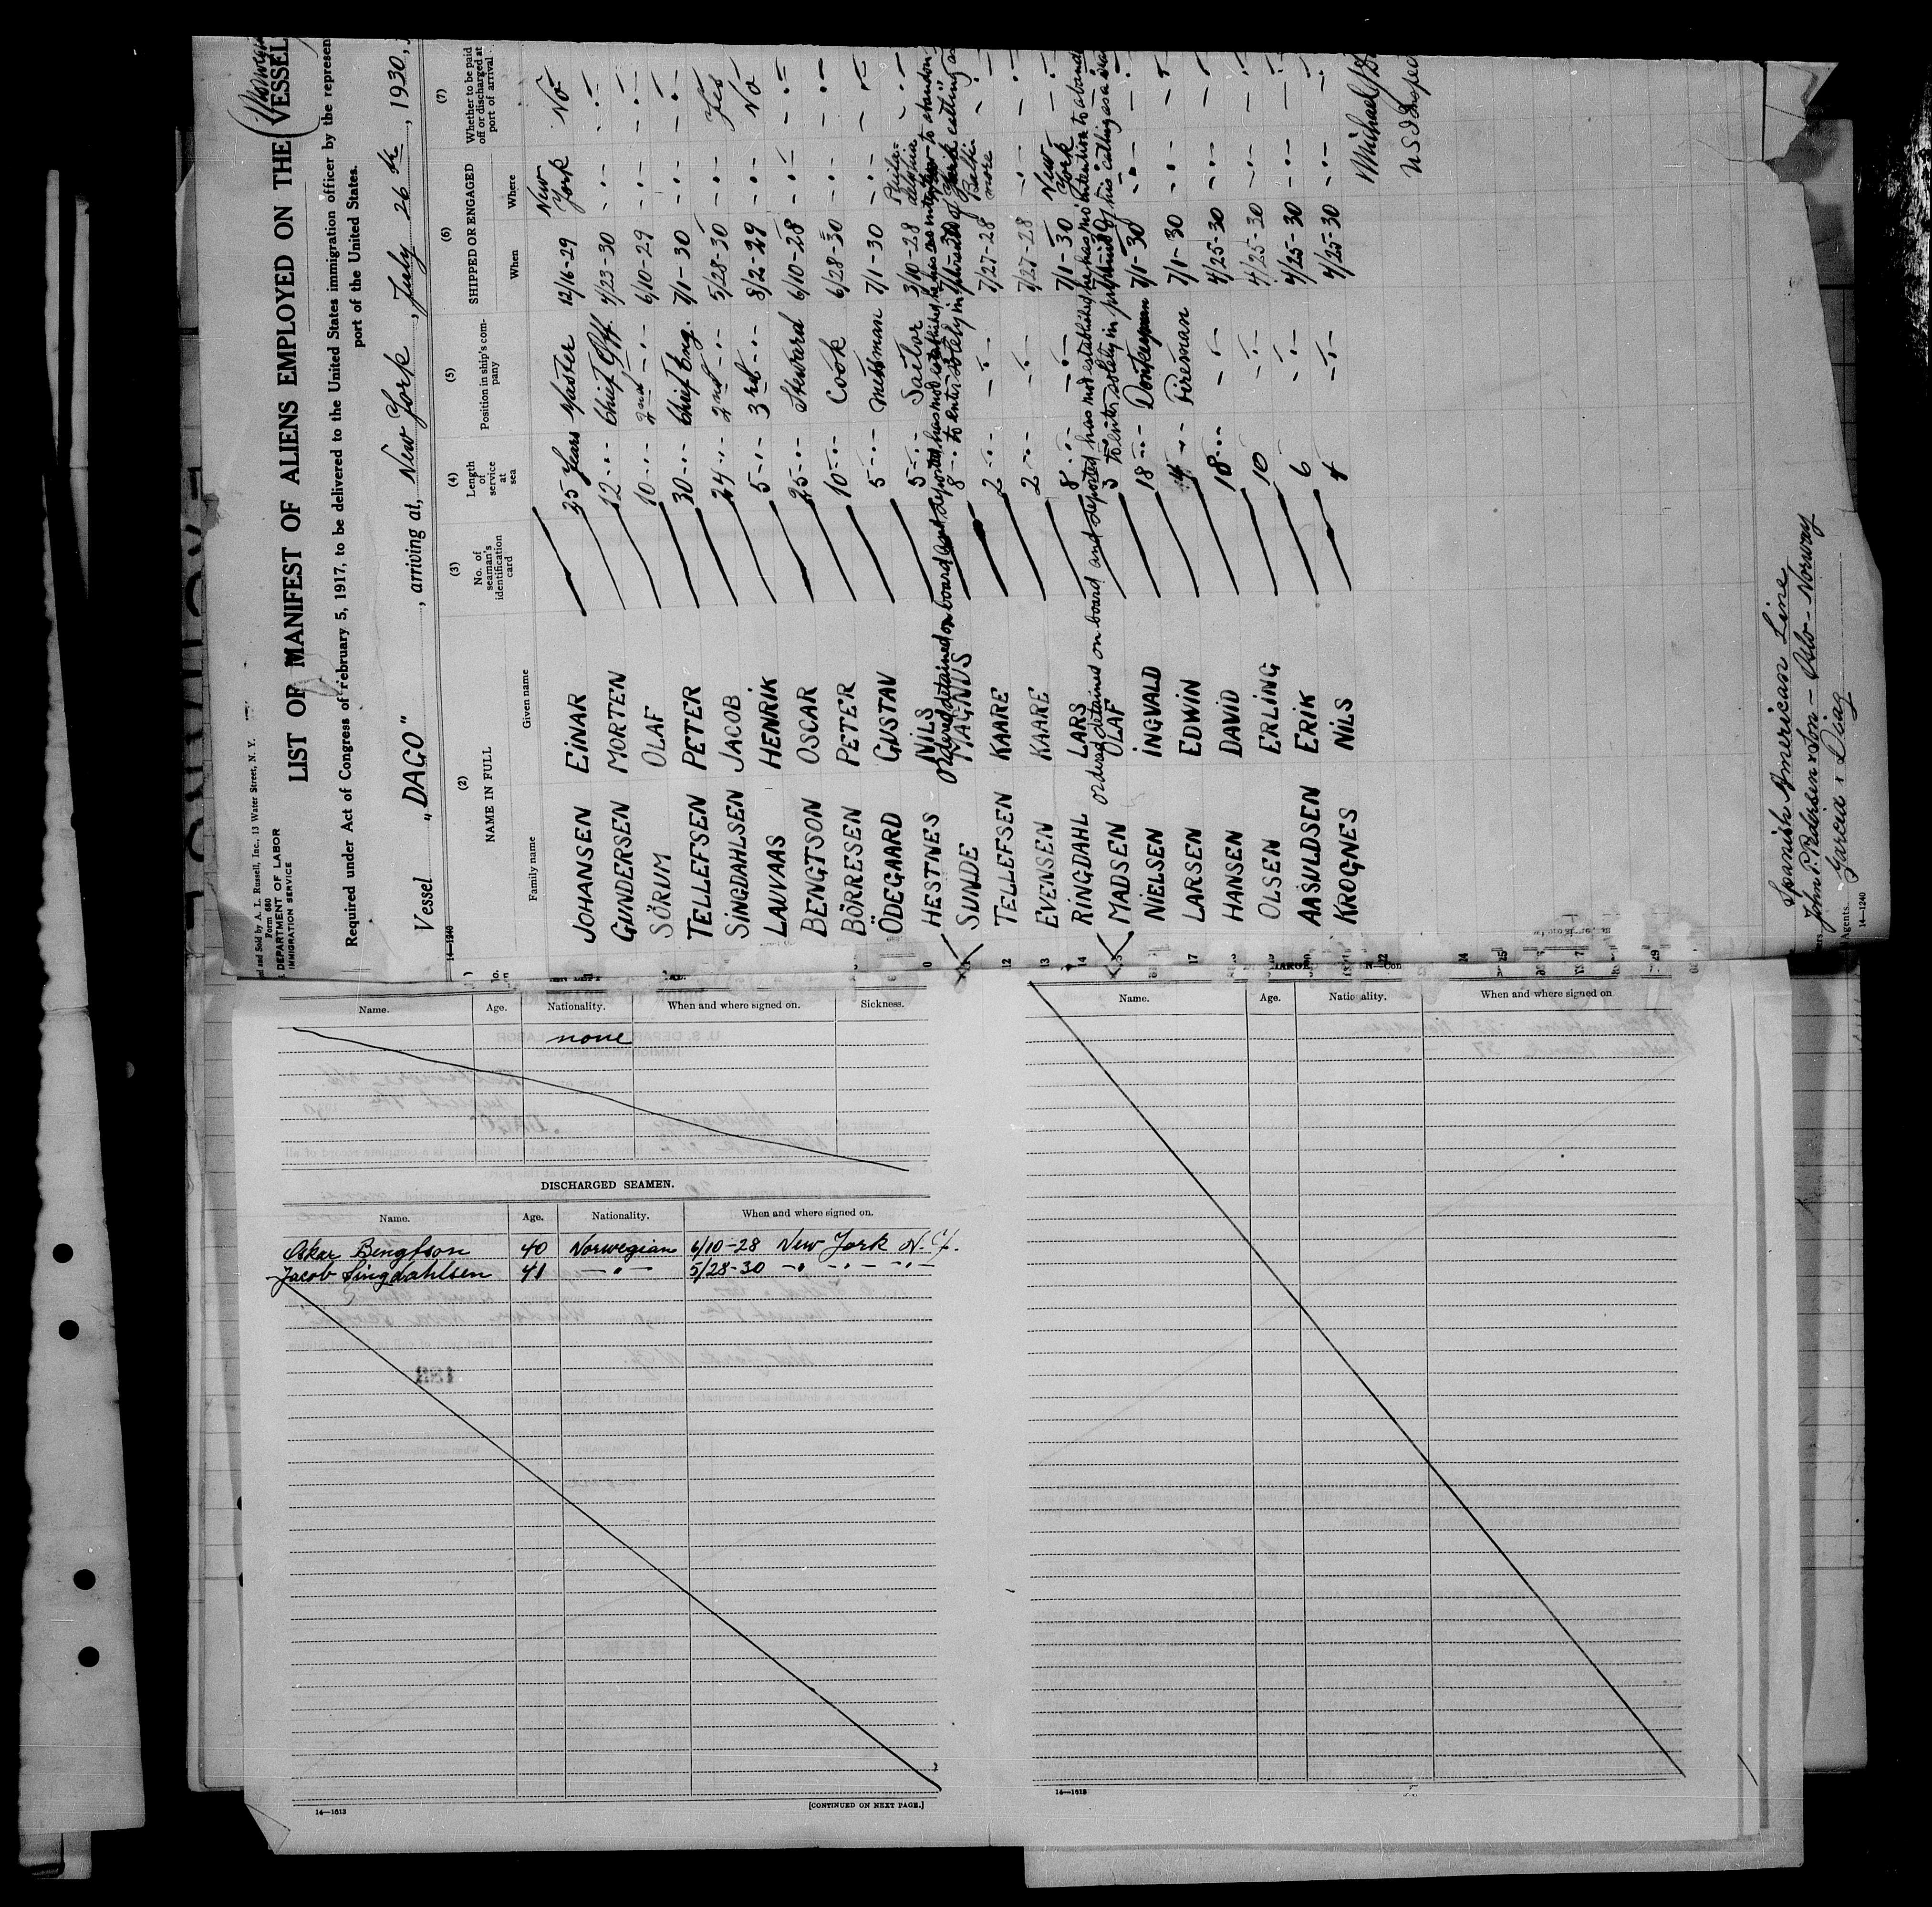 ed and Sold by A. L. Russell, Inc., 13 Water Street, N. Y.
Form 680
DEPARTMENT OF LABOR
IMMIGRATION SERVICE
LIST OF MANIFEST OF ALIENS EMPLOYED ON THE VESSEL
Required under Act of Congress of February 5, 1917, to be delivered to the United States immigration officer by the represen
port of the United States.
Vessel "DAGO", arriving at, New York, July 26th, 1930,
14—1240
(2) (3) (4) (5) (6) (7)
NAME IN FULL No. of seaman's identification card Length of service at sea Position in ship's company SHIPPED OR ENGAGED Whether to be paid off or discharged at port of arrival
Family name Given name When Where
JOHANSEN EINAR 25 Years Master 12/16-29 New York No
GUNDERSEN MORTEN 12 -"- Chief Off. 4/23-30 -"- -"-
SÖRUM OLAF 10 -"- 2nd -"- 6/10-29 -"- -"-
TELLEFSEN PETER 30 -"- Chief Eng. 7/1-30 -"- -"-
SINGDAHLSEN JACOB 24 -"- 2nd -"- 5/28-30 -"- Yes
LAUVAAS HENRIK 5 -"- 3rd -"- 8/2-29 -"- No
BENGTSON OSCAR 25 -"- Steward 6/10-28 -"- -"-
BÖRRESEN PETER 10 -"- Cook 6/28-30 -"- -"-
ÖDEGAARD GUSTAV 5 -"- Messman 7/1-30 -"- -"-
HESTNES NILS 5 -"- Sailor 3/10-28 Philadelphia -"-
Ordered detained on board and deported, has not established he has no intention to abandon
SUNDE MAGNUS 8 -"- 7/1-30 York
to enter solely in pursuit of his calling as
12 TELLEFSEN KAARE 2 -"- -"- 7/27-28 Baltimore -"-
13 EVENSEN KAARE 2 -"- -"- 7/27-28 -"- -"-
14 RINGDAHL LARS 8 -"- -"- 7/1-30 New York -"-
Ordered detained on board and deported has not established he has no intention to aband
MADSEN OLAF 3 7/1-30 -"-
to enter solely in pursuit of his calling as a sea
NIELSEN INGVALD 18 -"- Donkeyman 7/1-30 -"- -"-
17 LARSEN EDWIN 14 -"- Fireman 7/1-30 -"- -"-
HANSEN DAVID 18 -"- -"- 4/25-30 -"- -"-
OLSEN ERLING 10 -"- 4/25-30 -"- -"-
AASULDSEN ERIK 6 -"- 4/25-30 -"- -"-
KROGNES NILS 4 -"- 4/25-30 -"- -"-
Michael J.
U S I Inspec
Spanish American Line
John P. Pedersen & Son - Oslo - Norway
Agents. Garcia & Diaz
14—1240
Name. Age. Nationality. When and where signed on. Sickness.
none
DISCHARGED SEAMEN.
Name. Age. Nationality. When and where signed on.
Oskar Bengtson 40 Norwegian 6/10-28 New York N.Y.
Jacob Singdahlsen 41 -"- 5/28-30 -"- -"- -"-
14—1613
[CONTINUED ON NEXT PAGE.]
Name. Age. Nationality. When and where signed on
14—1613